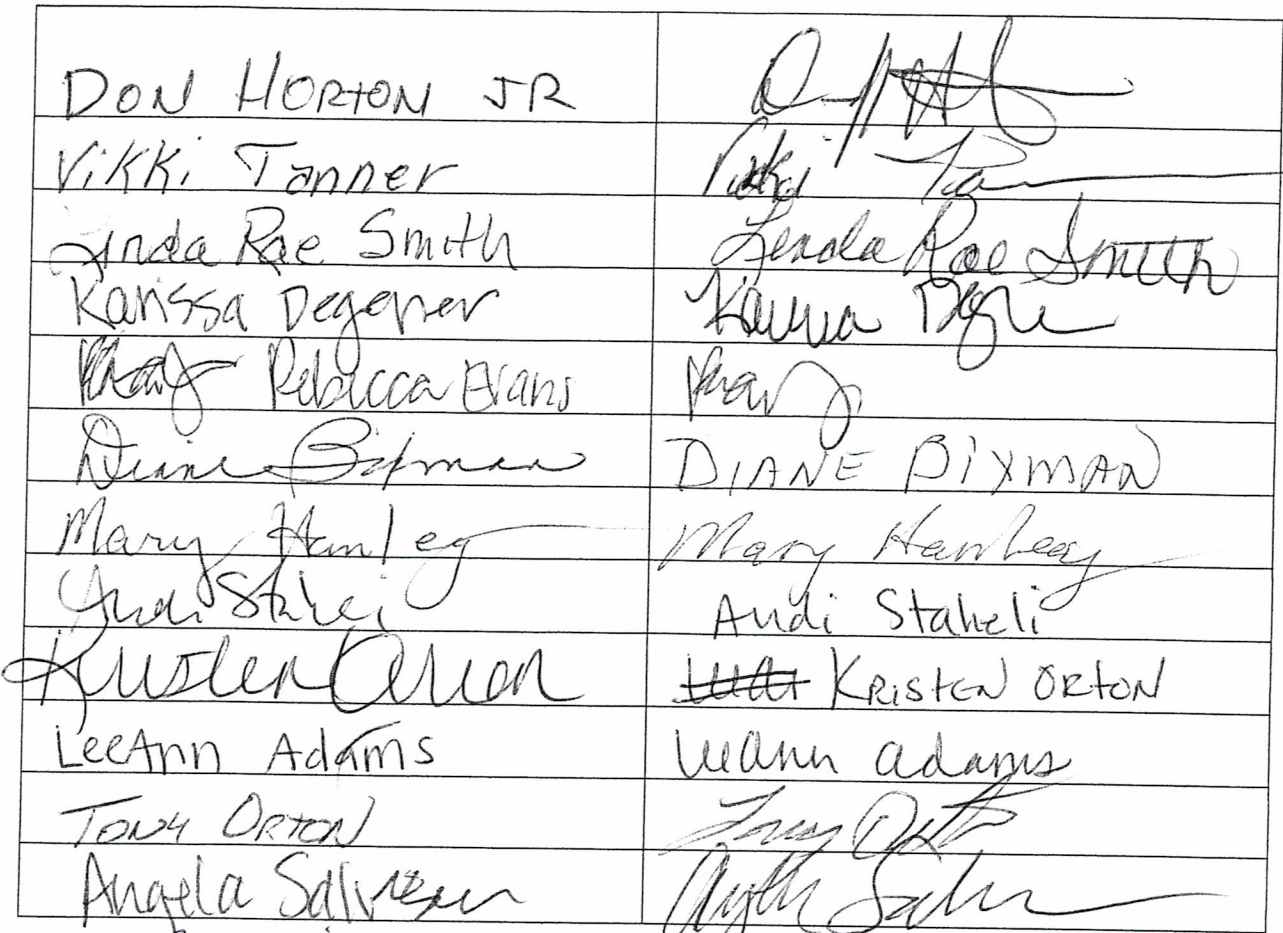 DON HORTON JR
Vikki Tanner Vikki
Linda Rae Smith Linda Rae Smith
Karissa Degener Karissa
Rebecca Evans
Diane Bixman DIANE BIXMAN
Mary Hanley Mary Hanley
Andi Staheli Andi Staheli
Kristen Orton KRISTEN ORTON
LeeAnn Adams LeeAnn Adams
TONY ORTON Tony Orton
Angela